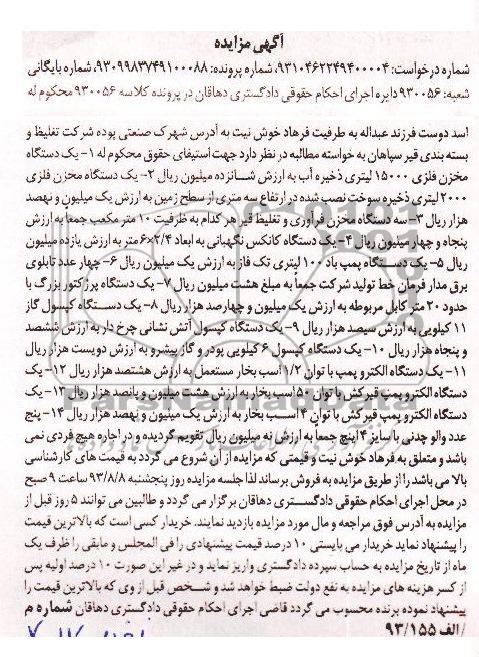 آگهی مزایده
شماره درخواست: ۹۳۱۰۴۶۲۲۴۹۴۰۰۰۰۴، شماره پرونده: ۹۳۰۹۹۸۳۷۴۹۱۰۰۰۸۸، شماره بایگانی
شعبه: ۹۳۰۰۵۶ دایره اجرای احکام حقوقی دادگستری دهاقان در پرونده کلاسه ۹۳۰۰۵۶ محکوم له
اسد دوست فرزند عبداله به طرفیت فرهاد خوش نیت به آدرس شهرک صنعتی پوده شرکت تغلیظ و
بسته بندی قیر سپاهان به خواسته مطالبه در نظر دارد جهت استیفای حقوق محکوم له ۱- یک دستگاه
مخزن فلزی ۱۵۰۰۰ لیتری ذخیره آب به ارزش شانزده میلیون ریال ۲- یک دستگاه مخزن فلزی
۲۰۰۰ لیتری ذخیره سوخت نصب شده در ارتفاع سه متری از سطح زمین به ارزش یک میلیون و نهصد
هزار ریال ۳- سه دستگاه مخزن فرآوری و تغلیظ قیر هر کدام به ظرفیت ۱۰ متر مکعب جمعا به ارزش
پنجاه و چهار میلیون ریال ۴- یک دستگاه کانکس نگهبانی به ابعاد ۲/۴×۶ متر به ارزش یازده میلیون
ریال ۵- یک دستگاه پمپ باد ۱۰۰ لیتری تک فاز به ارزش یک میلیون ریال ۶- چهار عدد تابلوی
برق مدار فرمان خط تولید شرکت جمعا به مبلغ هشت میلیون ریال ۷- یک دستگاه پرژکتور بزرگ با
حدود ۲۰ متر کابل مربوطه به ارزش یک میلیون و چهارصد هزار ریال ۸- یک دستگاه کپسول گاز
۱۱ کیلویی به ارزش سیصد هزار ریال ۹- یک دستگاه کپسول آتش نشانی چرخ دار به ارزش ششصد
و پنجاه هزار ریال ۱۰- یک دستگاه کپسول ۶ کیلویی پودر و گاز پیشرو به ارزش دویست هزار ریال
۱۱- یک دستگاه الکترو پمپ با توان ۱/۲ اسب بخار مستعمل به ارزش هشتصد ریال ۱۲- یک
دستگاه الکترو پمپ قیر کش با توان ۵۰ اسب بخار به ارزش هشت میلیون و پانصد هزار ریال ۱۳- یک
دستگاه الکترو پمپ قیر کش با توان ۴ اسب بخار به ارزش یک میلیون و نهصد هزار ریال ۱۴- پنج
عدد والو چدنی با سایز ۴ اینچ جمعا به ارزش نه میلیون ریال تقویم گردیده و در اجاره هیچ فردی نمی
باشد و متعلق به فرهاد خوش نیت و قیمتی که مزایده از آن شروع می گردد به قیمت های کارشناسی
بالا می باشد را از طریق مزایده به فروش برساند لذا جلسه مزایده روز پنجشنبه ۹۳/۸/۸ ساعت ۹ صبح
در محل اجرای احکام حقوقی دادگستری دهاقان برگزار می گردد و طالبین می توانند ۵ روز قبل از
مزایده به آدرس فوق مراجعه و مال مورد مزایده بازدید نمایند. خریدار کسی است که بالاترین قیمت
را پیشنهاد نماید خریدار می بایستی ۱۰ درصد قیمت پیشنهادی را فی المجلس و مابقی را ظرف یک
ماه از تاریخ مزایده به حساب سپرده دادگستری واریز نماید و در غیر این صورت ۱۰ درصد اولیه پس
از کسر هزینه های مزایده به نفع دولت ضبط خواهد شد و شخص قبل از وی که بالاترین قیمت را
پیشنهاد نموده برنده محسوب می گردد قاضی اجرای احکام حقوقی دادگستری دهاقان شماره م
/الف ۹۳/۱۵۵